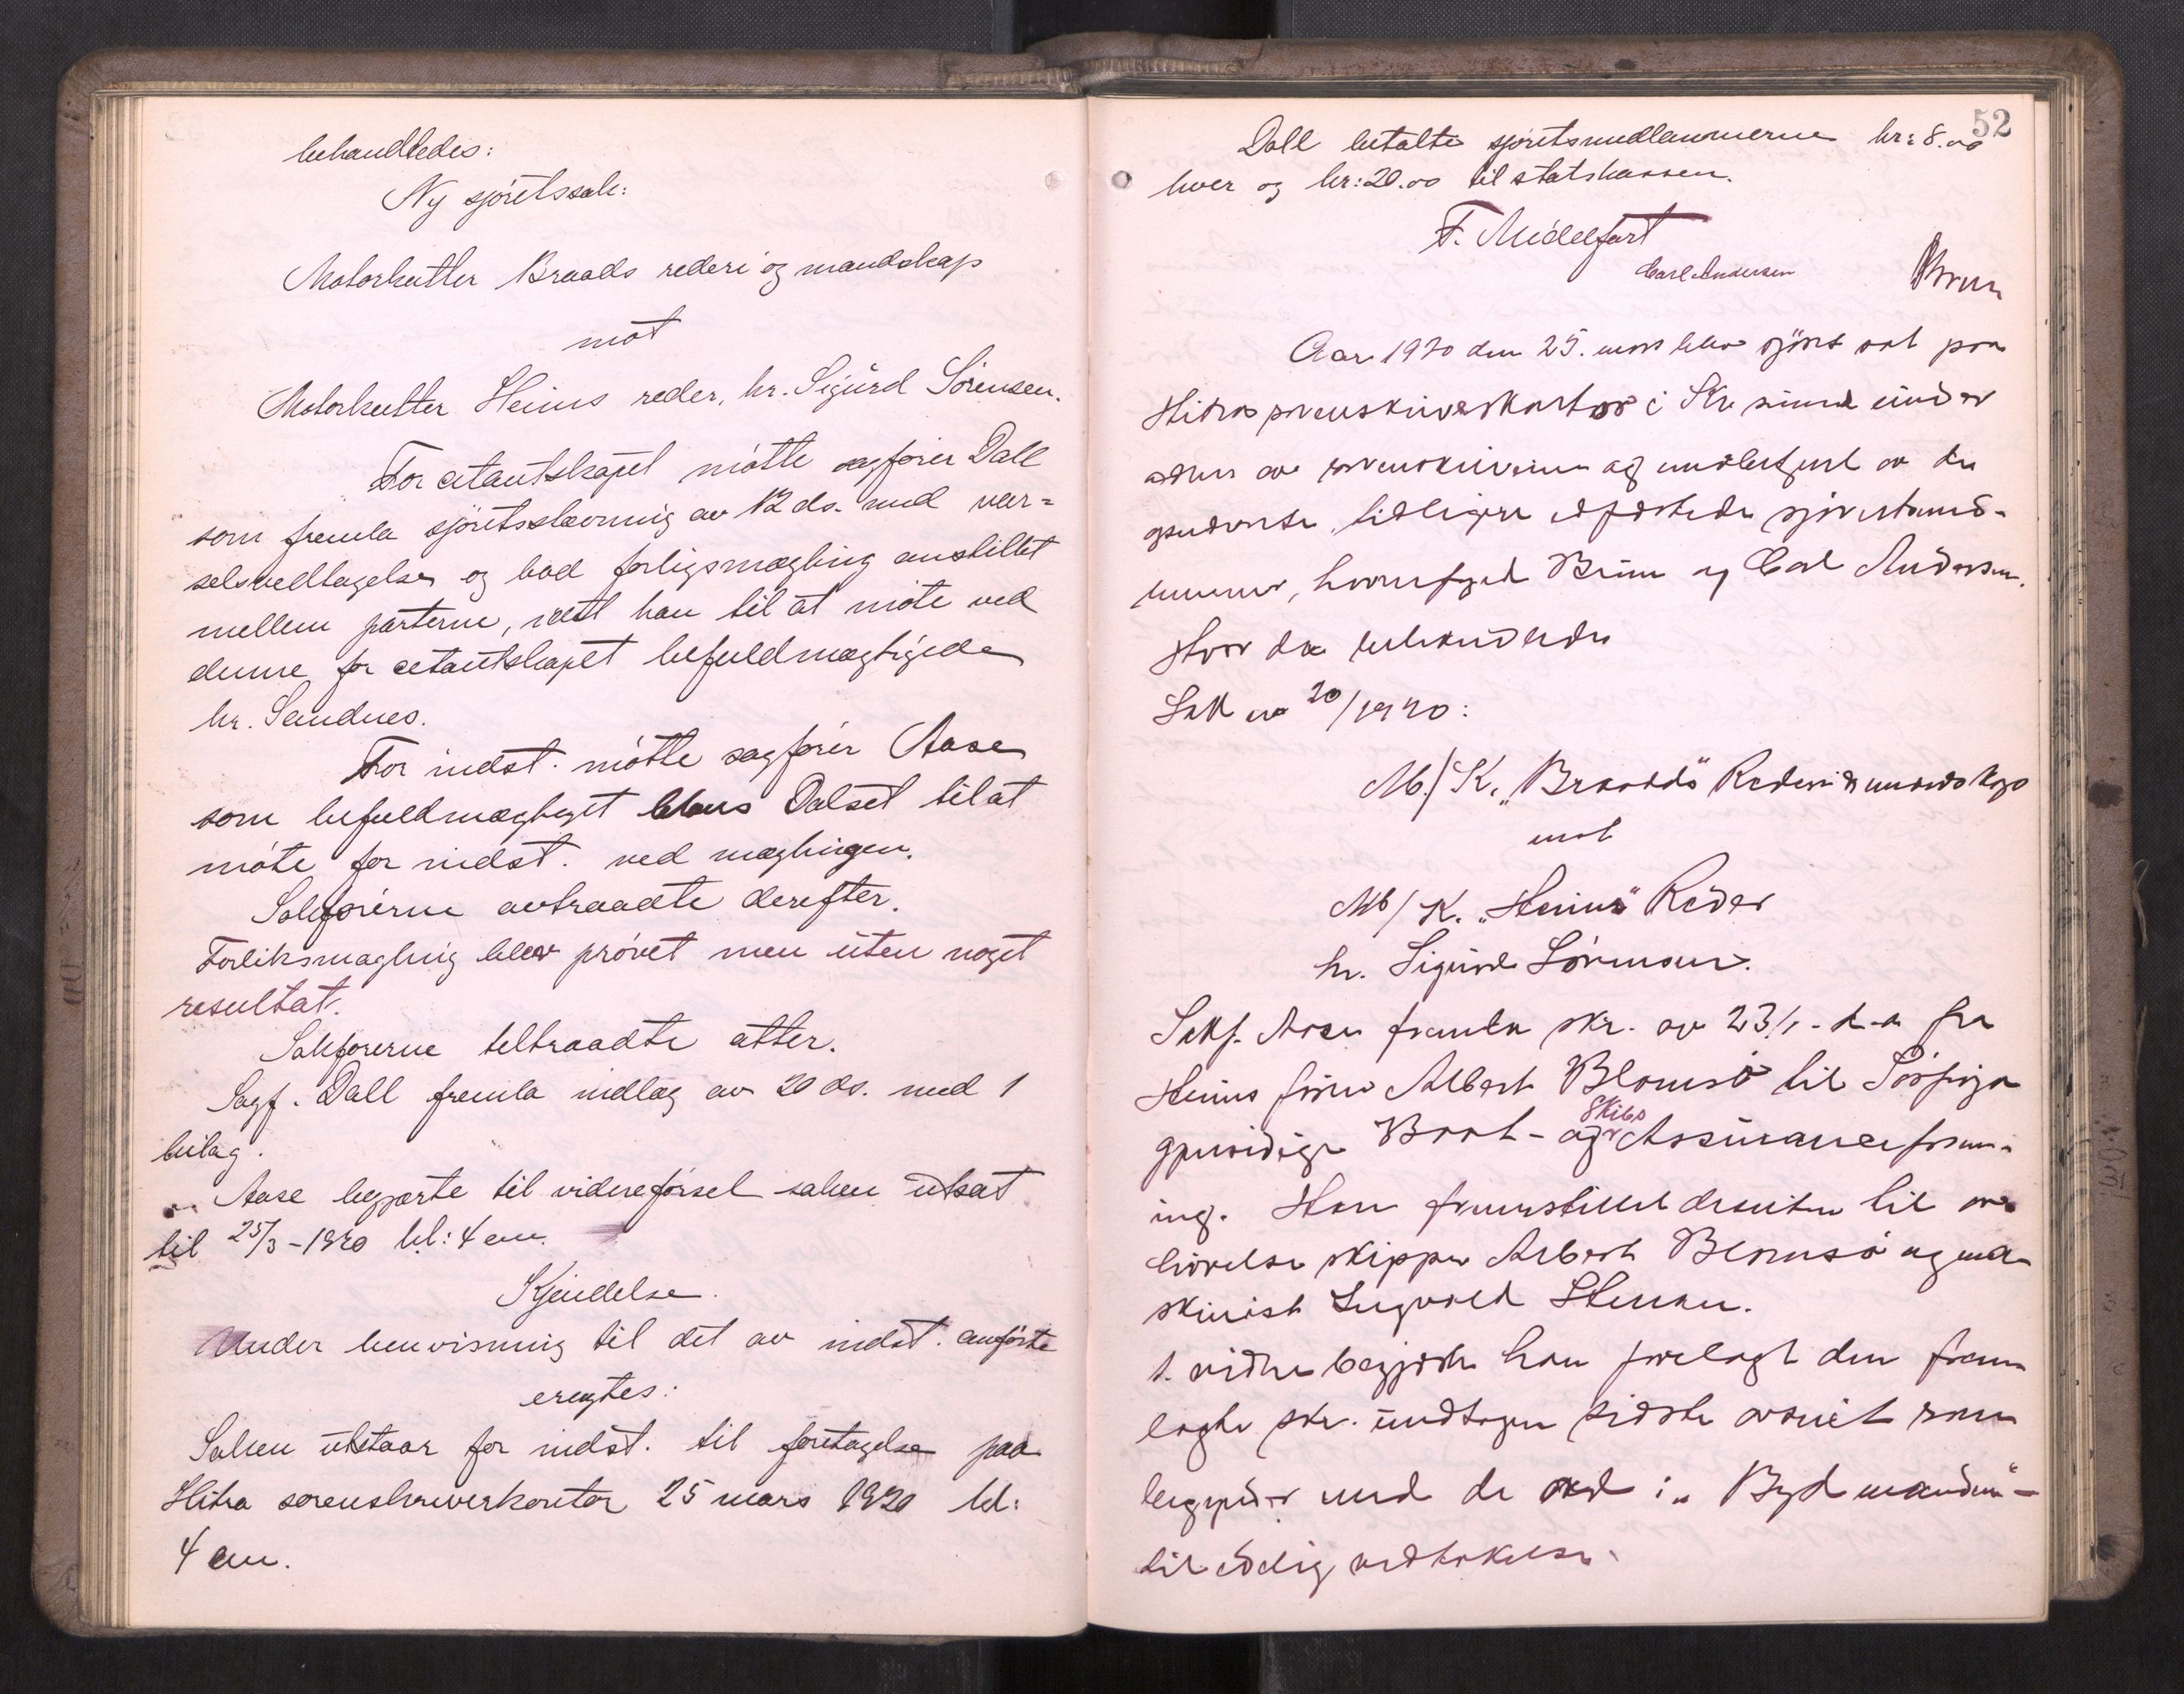 behandledes:
Ny sjöretssak:
Motorkutter Braads rederi og mandskap
mot
Motorkutter Heims reder, hr. Sigurd Sörensen.
For citantskapet mötte sagförer Dall
som fremla sjöretsstævning av 12 ds. med var=
selsvedtagelse og bad forligsmægling anstillet
mellem parterne, idet han til at möte ved
denne for citantskapet befuldmægtigede
hr. Sandnes.
For indst. mötte sagförer Aase
som befuldmægtiget Claus Dalset til at
möte for indst. ved mæglingen.
Sakförerne avtraadte derefter.
Forliksmægling blev prövet men uten noget
resultat.
Sakförerne tiltraadte atter.
Sagf. Dall fremla indlæg av 20 ds. med 1
bilag.
" Aase begjærte til videreförsel saken utsat
til 25/3-1920 kl: 4 em.
Kjendelse.
Under henvisning til det av indst. anförte
eragtes:
Saken utstaar for indst. til foretagelse paa
Hitra sorenskriverkontor 25 mars 1920 kl:
4 em.
52
Dall betalte sjöretsmedlemmerne kr: 8.00
hver og kr: 20.00 til statskassen.
F. Midelfart
Carl Andersen
Brun
Aar 1920 den 25. mars blev sjöret sat paa
Hitra sorenskriverkontor i Kr.sund under
av sorenskriveren og av de
tidligere sjöretsmed-
lemmer, Brun og Carl Andersen.
Hvor da behandledes
Sak nr 20/1920:
M/K. "Braads" Rederi & mandskap
mot
M/K. "Heims" Reder
hr. Sigurd Sörensen.
Sakf. Aase fremla skr. av 23/1- d.a fra
Heims förer Albert Blomsö til
gjensidige Baat- og Skibs Assuranceforen-
ing. Han fremstillet desuten til av-
hörelse skipper Albert Blomsö og ma-
skinist Ingvald
1. vidne begjærte han forelagt den frem-
lagte skr. undtagen sidste avsnit som
begynder med de ord: "
til edelig vedtakelse.